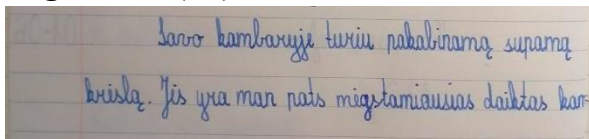 Savo kambaryje turiu pakabinamą supamą
krislą. Jis yra man pats migstamiausias daiktas kam-